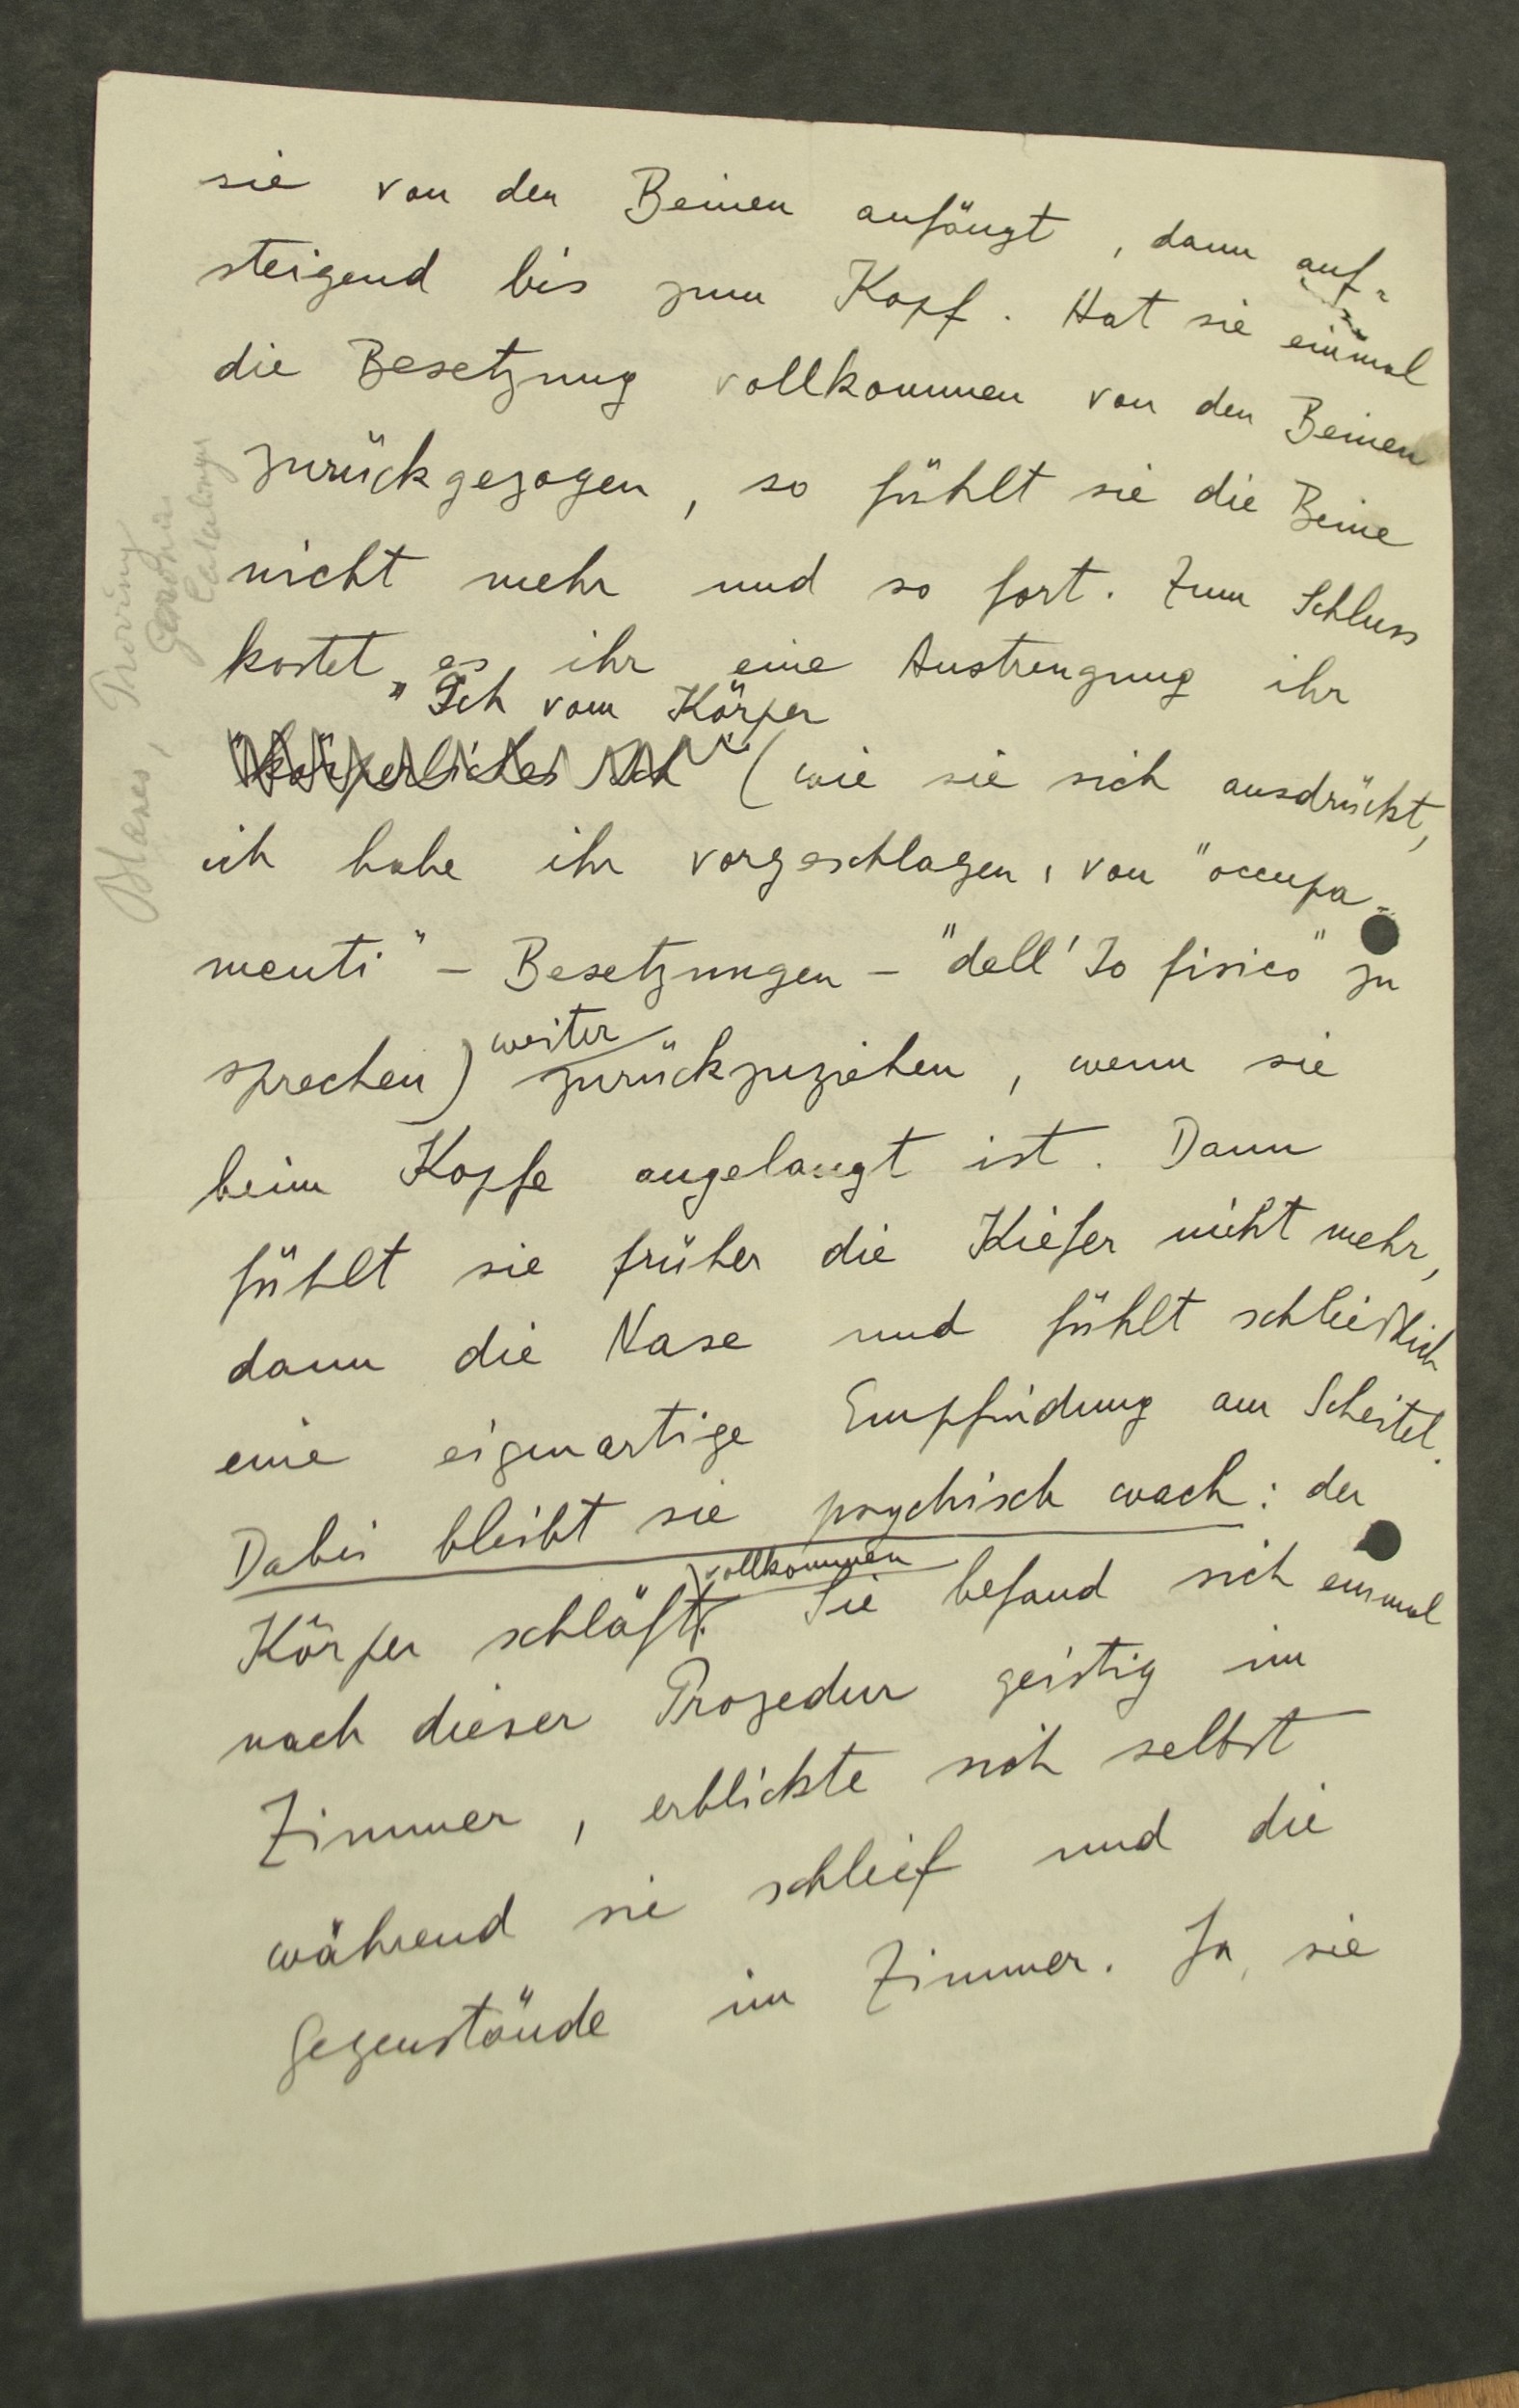 sie von den Beinen anfängt, dann auf-
steigend bis zum Kopf. Hat sie einmal
die Besetzung vollkommen von den Beinen
zurückgezogen, so fühlt sie die Beine
nicht mehr und so fort. Zum Schluss
kostet es ihr eine Anstrengung ihr
"Ich vom Körper"
"körperliches Ich" (wie sie sich ausdrückt,
ich habe ihr vorgeschlagen, von "occupa-
menti" – Besetzungen – "dell'Io fisico" zu
weiter
sprechen) zurückzuziehen, wenn sie
beim Kopfe angelangt ist. Dann
fühlt sie früher die Kiefer nicht mehr,
dann die Nase und fühlt schließlich
eine eigenartige Empfindung am Scheitel.
Dabei bleibt sie psychisch wach: der
vollkommen
Körper schläft. Sie befand sich einmal
nach dieser Prozedur geistig im
Zimmer, erblickte sich selbst
während sie schlief und die
Gegenstände im Zimmer. Ja, sie
Blanes, Provinz